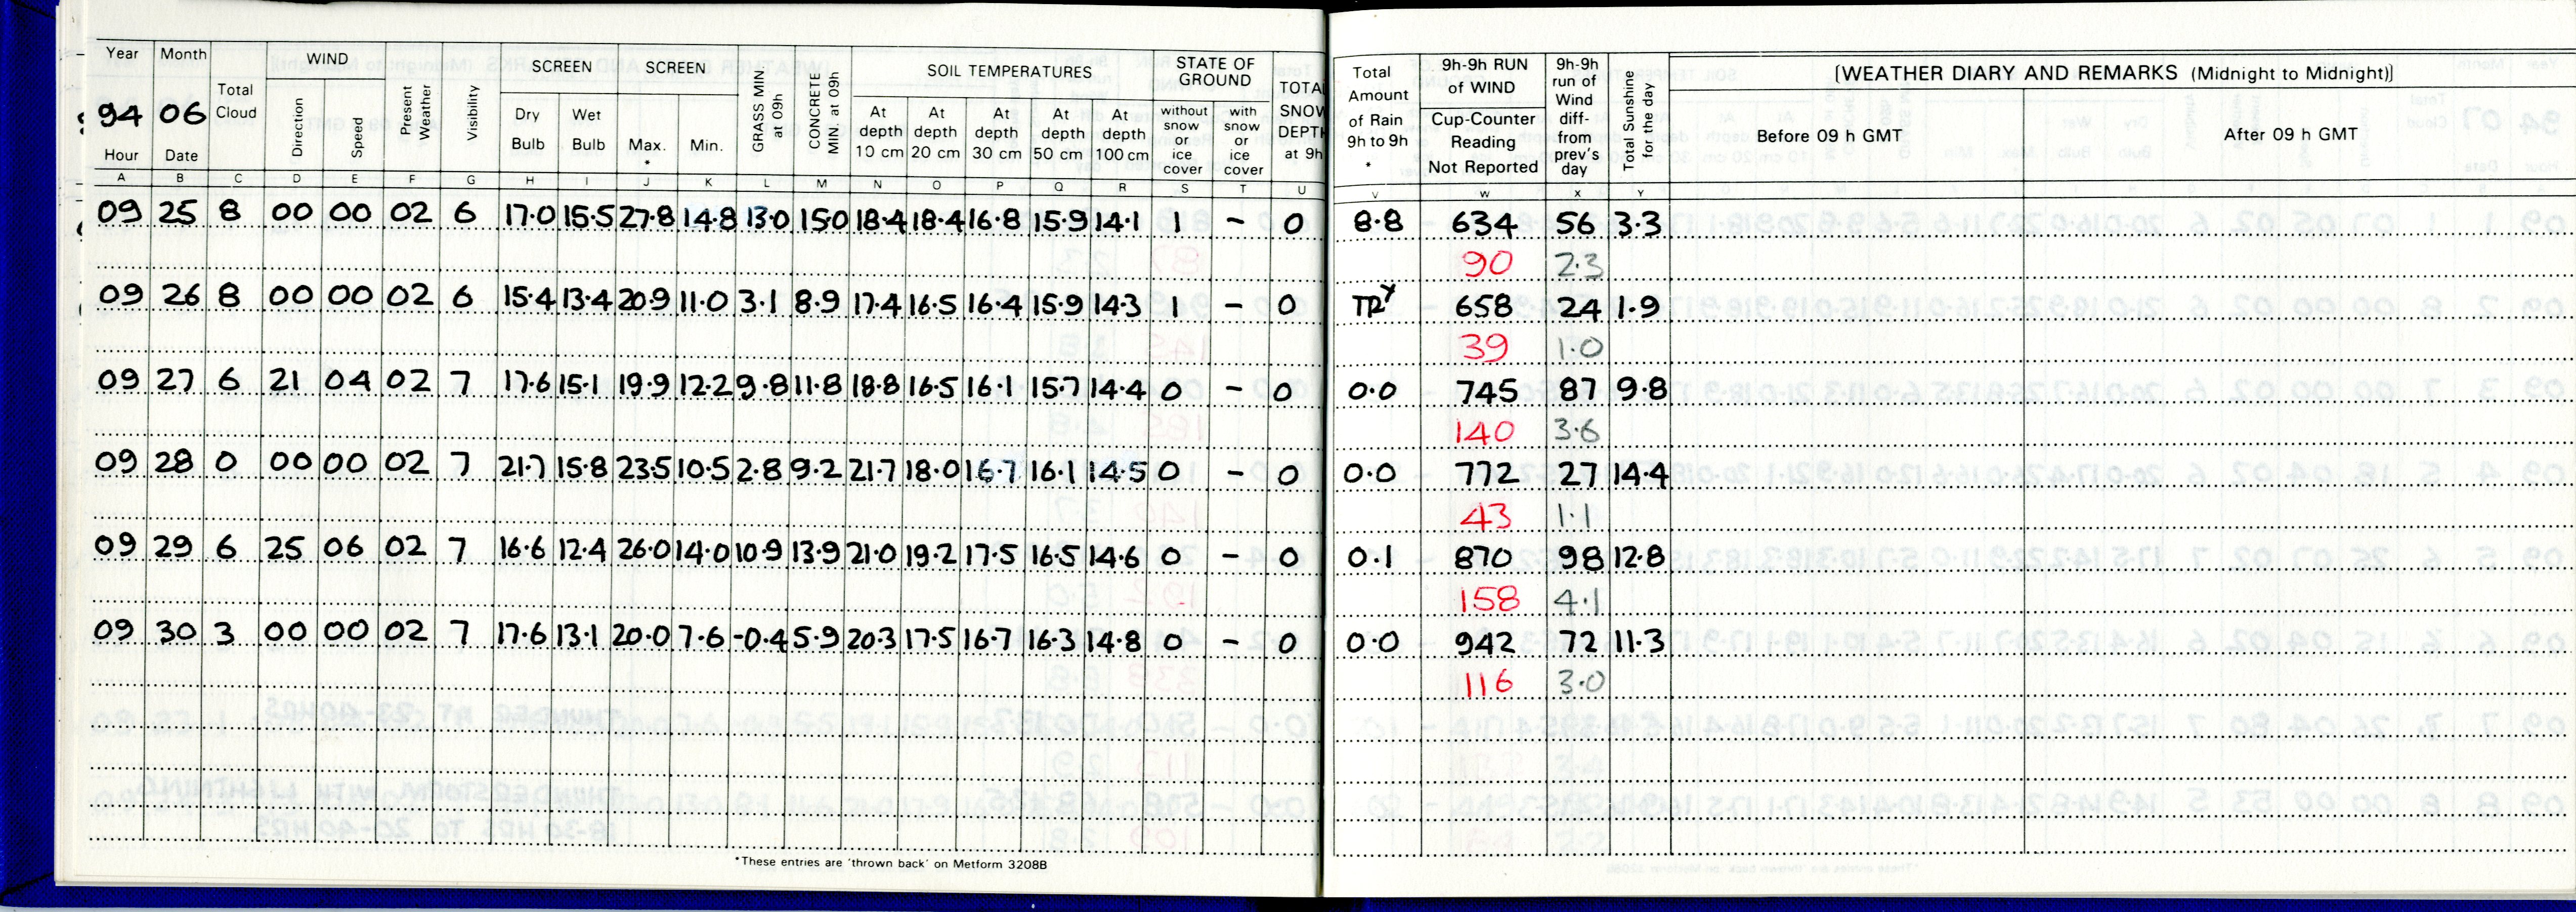 Year Month WIND SCREEN SCREEN GRASS MIN at 09h CONCRETE MIN. at 09h SOIL TEMPERATURES STATE OF GROUND TOTAL SNOW DEPTH at 9h
94 06 Total Cloud Direction Speed Present Weather Visibility Dry Bulb Wet Bulb Max. * Min. At depth 10 cm At depth 20 cm At depth 30 cm At depth 50 cm At depth 100 cm without snow or ice cover with snow or ice cover
Hour Date
Total Amount of Rain 9h to 9h * 9h-9h RUN of WIND Cup-Counter Reading Not Reported 9h-9h run of Wind diff- from prev's day Total Sunshine for the day [WEATHER DIARY AND REMARKS (Midnight to Midnight)]
Before 09 h GMT After 09 h GMT
A B C D E F G H I J K L M N O P Q R S T U V W X Y
09 25 8 00 00 02 6 17.0 15.5 27.8 14.8 13.0 15.0 18.4 18.4 16.8 15.9 14.1 1 – 0 8.8 634 56 3.3
90 2.3
09 26 8 00 00 02 6 15.4 13.4 20.9 11.0 3.1 8.9 17.4 16.5 16.4 15.9 14.3 1 – 0 TR 658 24 1.9
39 1.0
09 27 6 21 04 02 7 17.6 15.1 19.9 12.2 9.8 11.8 18.8 16.5 16.1 15.7 14.4 0 – 0 0.0 745 87 9.8
140 3.6
09 28 0 00 00 02 7 21.7 15.8 23.5 10.5 2.8 9.2 21.7 18.0 16.7 16.1 14.5 0 – 0 0.0 772 27 14.4
43 1.1
09 29 6 25 06 02 7 16.6 12.4 26.0 14.0 10.9 13.9 21.0 19.2 17.5 16.5 14.6 0 – 0 0.1 870 98 12.8
158 4.1
09 30 3 00 00 02 7 17.6 13.1 20.0 7.6 -0.4 5.9 20.3 17.5 16.7 16.3 14.8 0 – 0 0.0 942 72 11.3
116 3.0
*These entries are 'thrown back' on Metform 3208B